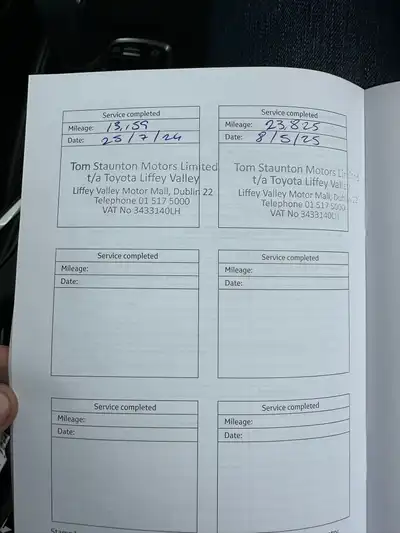 Service completed
Mileage: 13,159
Date: 25/7/24
Tom Staunton Motors Limited
t/a Toyota Liffey Valley
Liffey Valley Motor Mall, Dublin 22
Telephone 01 517 5000
VAT No 3433140LH
Service completed
Mileage: 23,825
Date: 8/5/25
Tom Staunton Motors Limited
t/a Toyota Liffey Valley
Liffey Valley Motor Mall, Dublin 22
Telephone 01 517 5000
VAT No 3433140LH
Service completed
Mileage:
Date:
Service completed
Mileage:
Date:
Service completed
Mileage:
Date:
Service completed
Mileage:
Date: